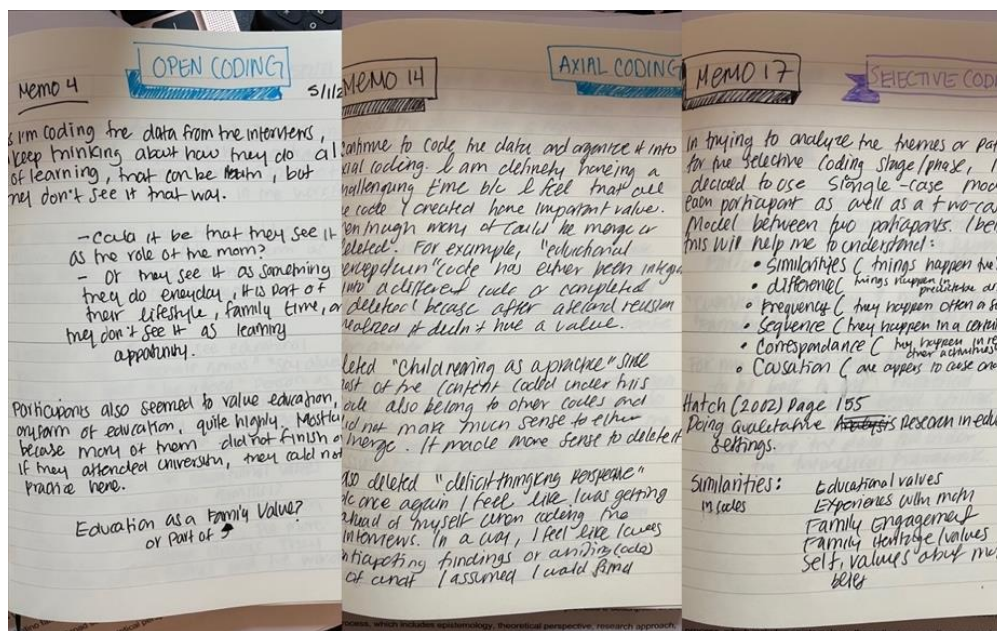 Memo 4
OPEN CODING
5/1/2
s I'm coding the data from the interviews,
keep thinking about how they do al
of learning, that can be math, but
hey don't see it that way.
- Could it be that they see it
as the role of the mom?
- Or they see it as something
they do everyday, it is part of
their lifestyle, family time, or
they don't see it as learning
opportunity.
Participants also seemed to value education,
any form of education, quite highly. Mostly
because many of them did not finish o
If they attended university, they could not
practice here.
Education as a Family Value?
or part of
MEMO 14
AXIAL CODING
continue to code the data and organize it into
xial coding. I am definitely having a
hallenging time b/c I feel that all
e code I created have important value.
en though many of could be merge or
deleted. For example, "eductional
perception" code has either been integra
into a different code or completed
deletion because after a second revision
realized it didn't have a value.
leted "Childrearing as a practice" since
ost of the content coded under this
ode also belong to other codes and
id not make much sense to either
merge. It made more sense to delete it
lso deleted "deficit thinking perspective"
b/c once again I feel like I was getting
ahead of myself when coding the
interviews. In a way, I feel like I was
nticipating findings or writing codes
of what I assumed I would find
MEMO 17
SELECTIVE COD
In trying to analyze the themes or pat
for the selective coding stage/phase, I
decided to use single-case mod
each participant as well as a two-ca
Model between two paticipants. I be
this will help me to understand:
• Similarities ( things happen the
• difference ( things happen
• Frequency ( they happen often a
• Sequence ( they happen in a certai
• Correspondance ( they happen in re
other activities
• Causation ( one appers to cause ano
Hatch (2002) Page 155
Doing Qualitative Research in edu
settings.
Similarities:
in codes
Educational values
Experiences with math
Family Engagement
Family Heritage/values
Self, values about ma
belief
ocess, which includes epistemology, theoretical perspective, research approach,